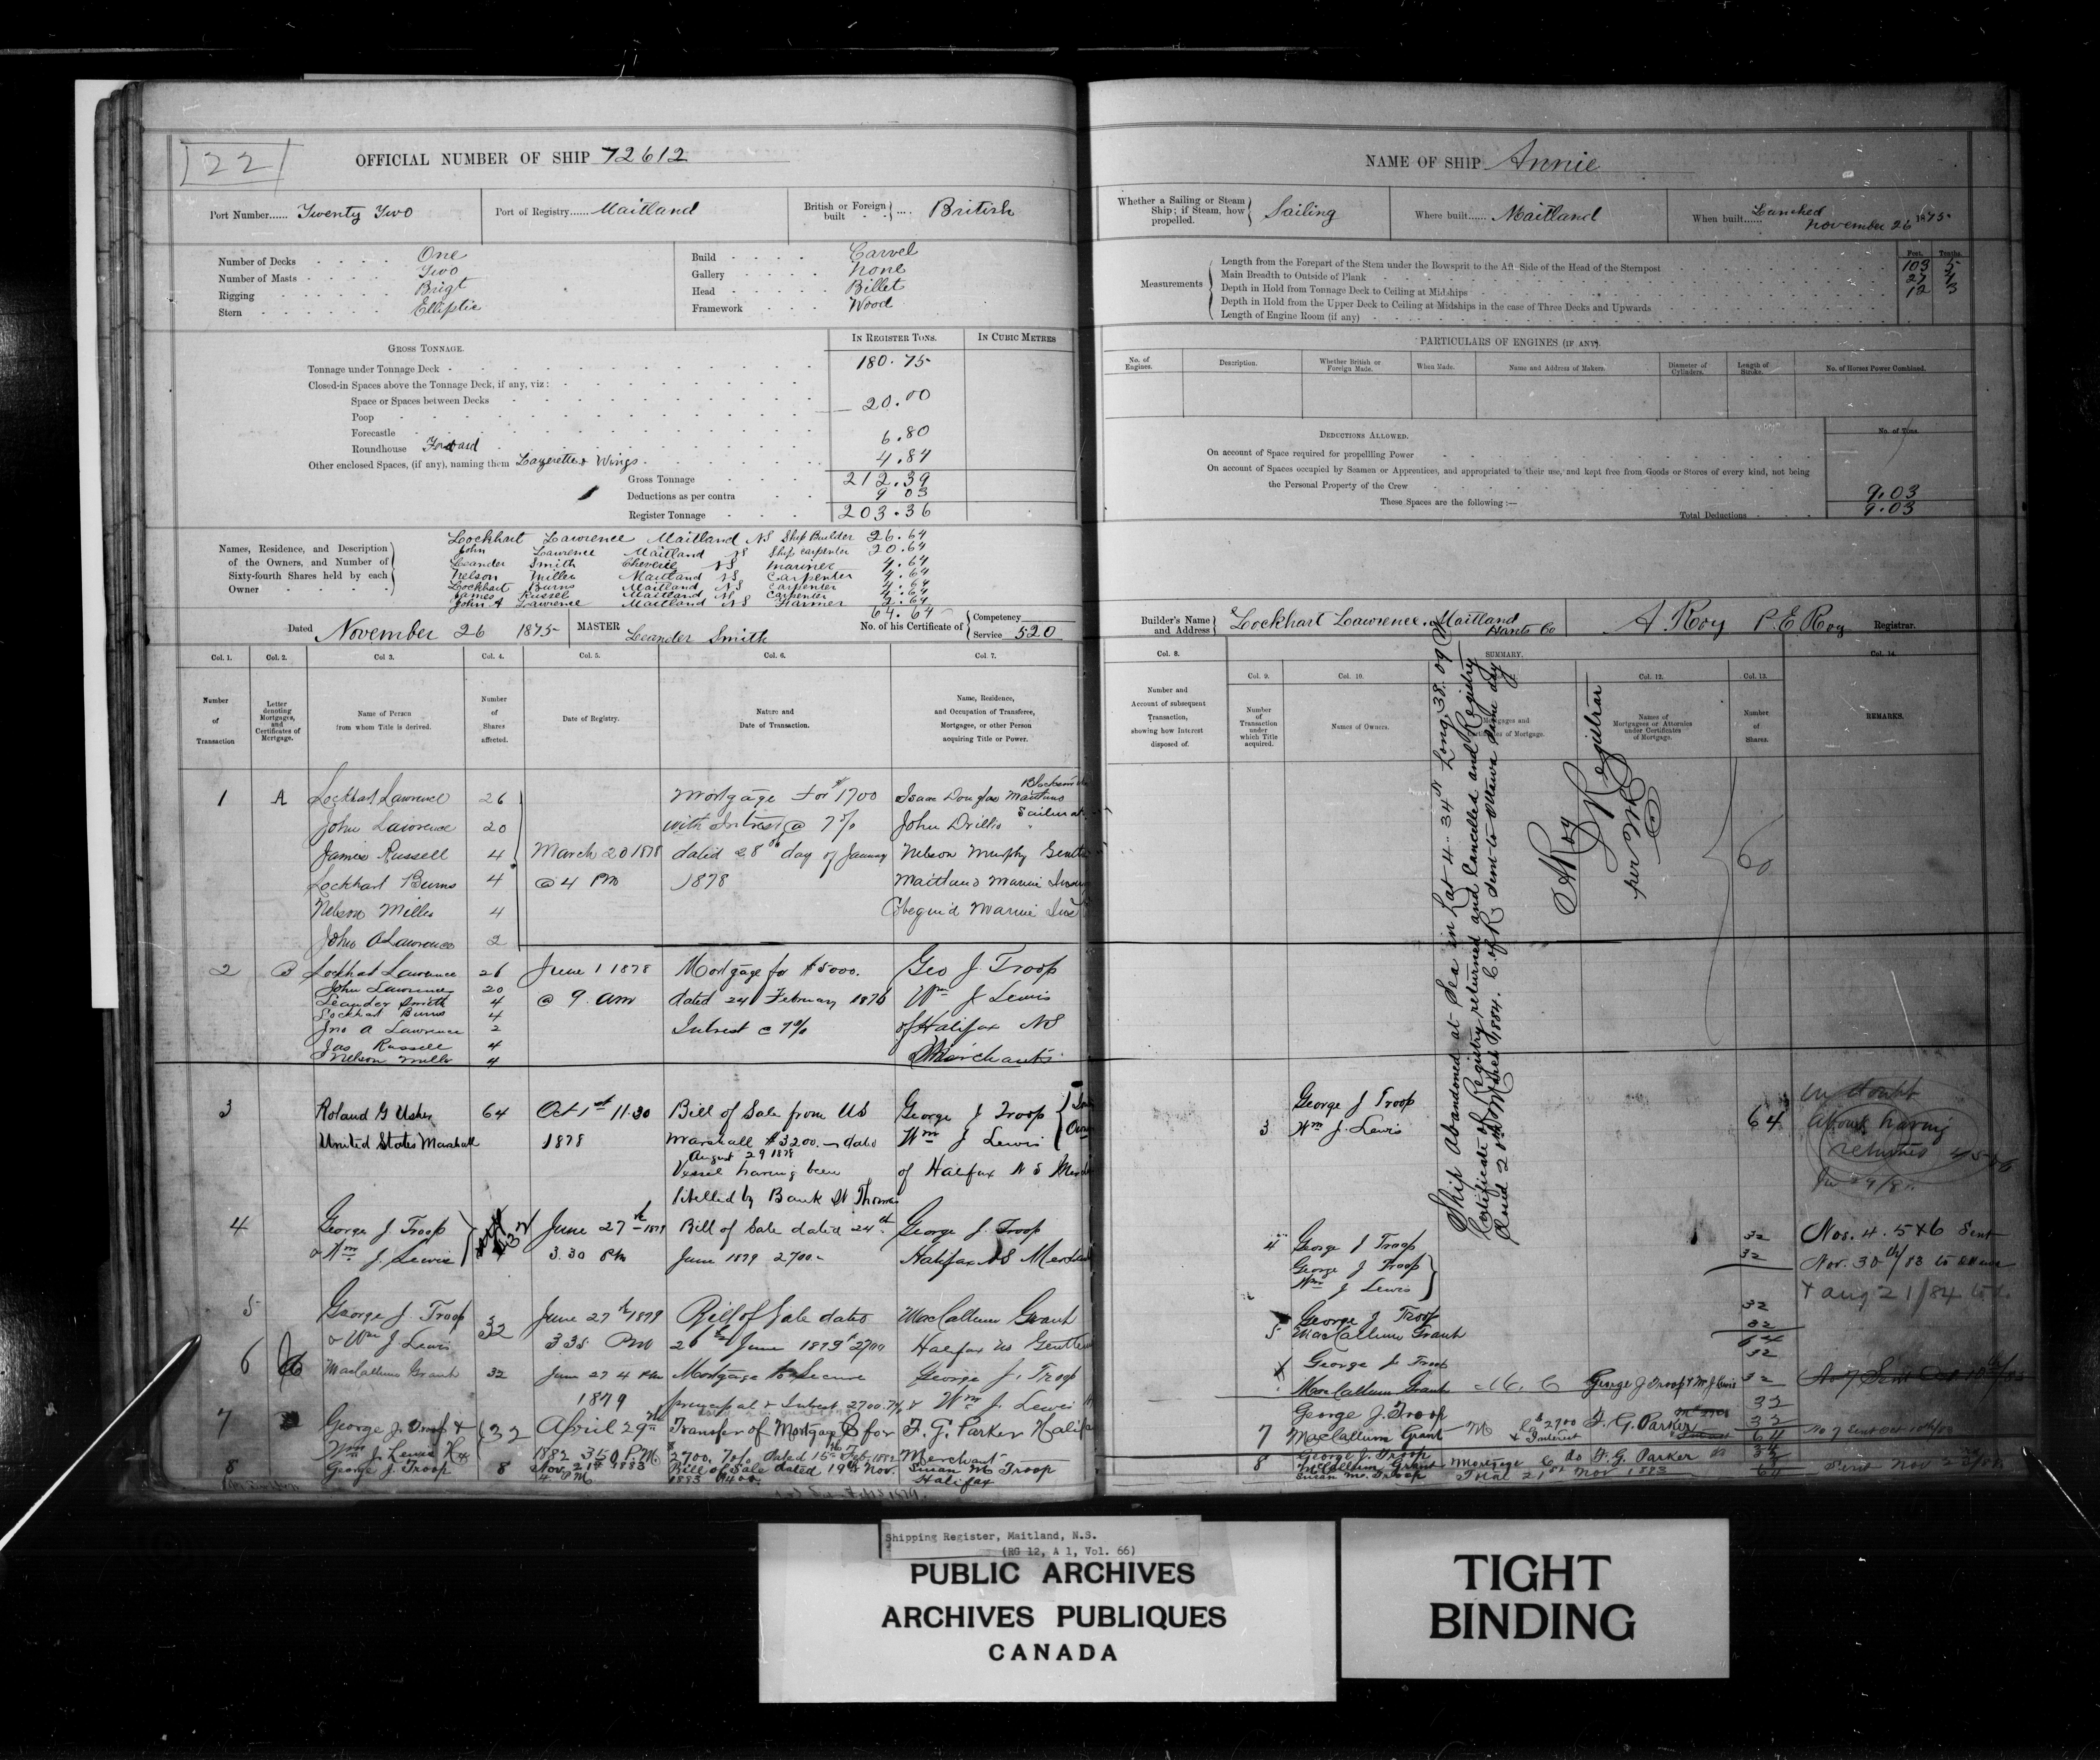 22
OFFICIAL NUMBER OF SHIP 72612
Port Number...... Twenty Two
Port of Registry...... Maitland
British or Foreign built .... British
Number of Decks One
Number of Masts Two
Rigging Brigt
Stern Elliptic
Build Carvel
Gallery None
Head Billet
Framework Wood
GROSS TONNAGE.
IN REGISTER TONS.
IN CUBIC METRES
Tonnage under Tonnage Deck 180.75
Closed-in Spaces above the Tonnage Deck, if any, viz:
Space or Spaces between Decks
Poop 20.00
Forecastle
Roundhouse Forward 6.80
Other enclosed Spaces, (if any), naming them Lazerette & Wings 4.84
Gross Tonnage 212.39
Deductions as per contra 9 03
Register Tonnage 203.36
Names, Residence, and Description of the Owners, and Number of Sixty-fourth Shares held by each Owner
Lockhart Lawrence Maitland NS Ship Builder 26.64
John Lawrence Maitland NS Ship carpenter 20.64
Leander Smith Cheverie NS Mariner 4.64
Nelson Miller Maitland NS Carpenter 4.64
Lockhart Burns Maitland NS Carpenter 4.64
James Russell Maitland NS Carpenter 4.64
John A Lawrence Maitland NS Farmer 2.64
64.64
Dated November 26 1875
MASTER Leander Smith
No. of his Certificate of Competency Service 520
Col. 1.
Col. 2.
Col 3.
Col. 4.
Col. 5.
Col. 6.
Col. 7.
Number of Transaction
Letter denoting Mortgages, and Certificates of Mortgage.
Name of Person from whom Title is derived.
Number of Shares affected.
Date of Registry.
Nature and Date of Transaction.
Name, Residence, and Occupation of Transferee, Mortgagee, or other Person acquiring Title or Power.
1 A Lockhart Lawrence 26 Mortgage for $1700 Isaac Douglas Maitland
John Lawrence 20 with Intrest @ 7% John Drillis
James Russell 4 March 20 1878 dated 28th day of January Nelson Murphy
Lockhart Burns 4 @ 4 PM 1878 Maitland Marine
Nelson Miller 4 Cobequid Marine
John A Lawrence 2
2 B Lockhart Lawrence 26 June 1 1878 Mortgage for $5000. Geo J. Troop
John Lawrence 20
Leander Smith 4 @ 9. am dated 24 February 1876 Wm J Lewis
Lockhart Burns 4
Jno A Lawrence 2 Intrest @ 7% of Halifax NS
Jas Russell 4
Nelson Miller 4 Merchants
3 Roland G Usher 64 Oct 1st 11.30 Bill of Sale from US George J Troop
United States Marshall 1878 Marshall $3200. dated Wm J Lewis
August 29 1878
Vessel having been of Halifax N S
libelled by Bank St Thomas
4 George J Troop 32 June 27th 1879 Bill of Sale dated 24th George J. Troop
& Wm J. Lewis 3.30 PM June 1879 2700 Halifax NS
5 George J. Troop 32 June 27th 1879 Bill of Sale dated MacCallum Grant
& Wm J Lewis 3.35 PM 26th June 1879 $2700 Halifax NS
6 C MacCallum Grant 32 June 27 4 PM Mortgage to Secure George J. Troop
1879 principal & Intrest 2700. 7% & Wm J. Lewis
7 George J. Troop & 32 April 29th Transfer of Mortgage C for F. G. Parker Halifax
Wm J. Lewis Hx 1882 3.50 P.M $2700, 7%, Dated 15th Feb. 1882 Merchant
8 George J. Troop 8 Nov. 21st 1883 Bill of Sale dated 19th Nov. Susan M Troop
4 PM 1883 $400. Halifax
NAME OF SHIP Annie
Whether a Sailing or Steam Ship; if Steam, how propelled. Sailing
Where built...... Maitland
When built...... Lanched November 26 1875
Measurements
Feet. Tenths.
Length from the Forepart of the Stem under the Bowsprit to the Aft-Side of the Head of the Sternpost 103 5
Main Breadth to Outside of Plank 27 4
Depth in Hold from Tonnage Deck to Ceiling at Midships 12 3
Depth in Hold from the Upper Deck to Ceiling at Midships in the case of Three Decks and Upwards
Length of Engine Room (if any)
PARTICULARS OF ENGINES (IF ANY).
No. of Engines.
Description.
Whether British or Foreign Made.
When Made.
Name and Address of Makers.
Diameter of Cylinders.
Length of Stroke.
No. of Horses Power Combined.
DEDUCTIONS ALLOWED.
No. of Tons.
On account of Space required for propelling Power
On account of Spaces occupied by Seamen or Apprentices, and appropriated to their use, and kept free from Goods or Stores of every kind, not being
the Personal Property of the Crew 9.03
These Spaces are the following:—
Total Deductions 9.03
Builder's Name and Address Lockhart Lawrence, Maitland Hants Co
A. Roy P. E Roy Registrar.
Col. 8.
SUMMARY.
Col. 14.
Col. 9.
Col. 10.
Col. 12.
Col. 13.
Number and Account of subsequent Transaction, showing how Interest disposed of.
Number of Transaction under which Title acquired.
Names of Owners.
Mortgages and Certificates of Mortgage.
Names of Mortgagees or Attornies under Certificates of Mortgage.
Number of Shares.
REMARKS.
Ship Abandoned at Sea in Lat 4..34 N Long, 38.09 W
Certificate of Registry returned and Cancelled and Registry
Closed 20th March 1884. C. of R. sent to Ottawa same day
A Roy
Registrar
per
60
3 George J Troop 64
Wm J. Lewis
in doubt
about having
returned
4 George J Troop 32
George J Troop 32
Wm J Lewis
Nos. 4. 5 & 6 Sent
Nov. 30th/83 to Ottawa
& Aug 21/84 to do
5 George J Troop 32
MacCallum Grant 32
64
George J. Troop 32
MacCallum Grant M. C George J Troop & Wm J. Lewis 32
7 George J. Troop 32
MacCallum Grant M C $2700 & Interest F. G. Parker 32
64
No 7 sent Oct 10th/83
8 George J. Troop
McCallum Grant Mortgage C do F. G. Parker 32
Susan M. Troop 21st Nov 1883 64
Shipping Register, Maitland, N.S.
(RG 12, A 1, Vol. 66)
PUBLIC ARCHIVES
ARCHIVES PUBLIQUES
CANADA
TIGHT
BINDING